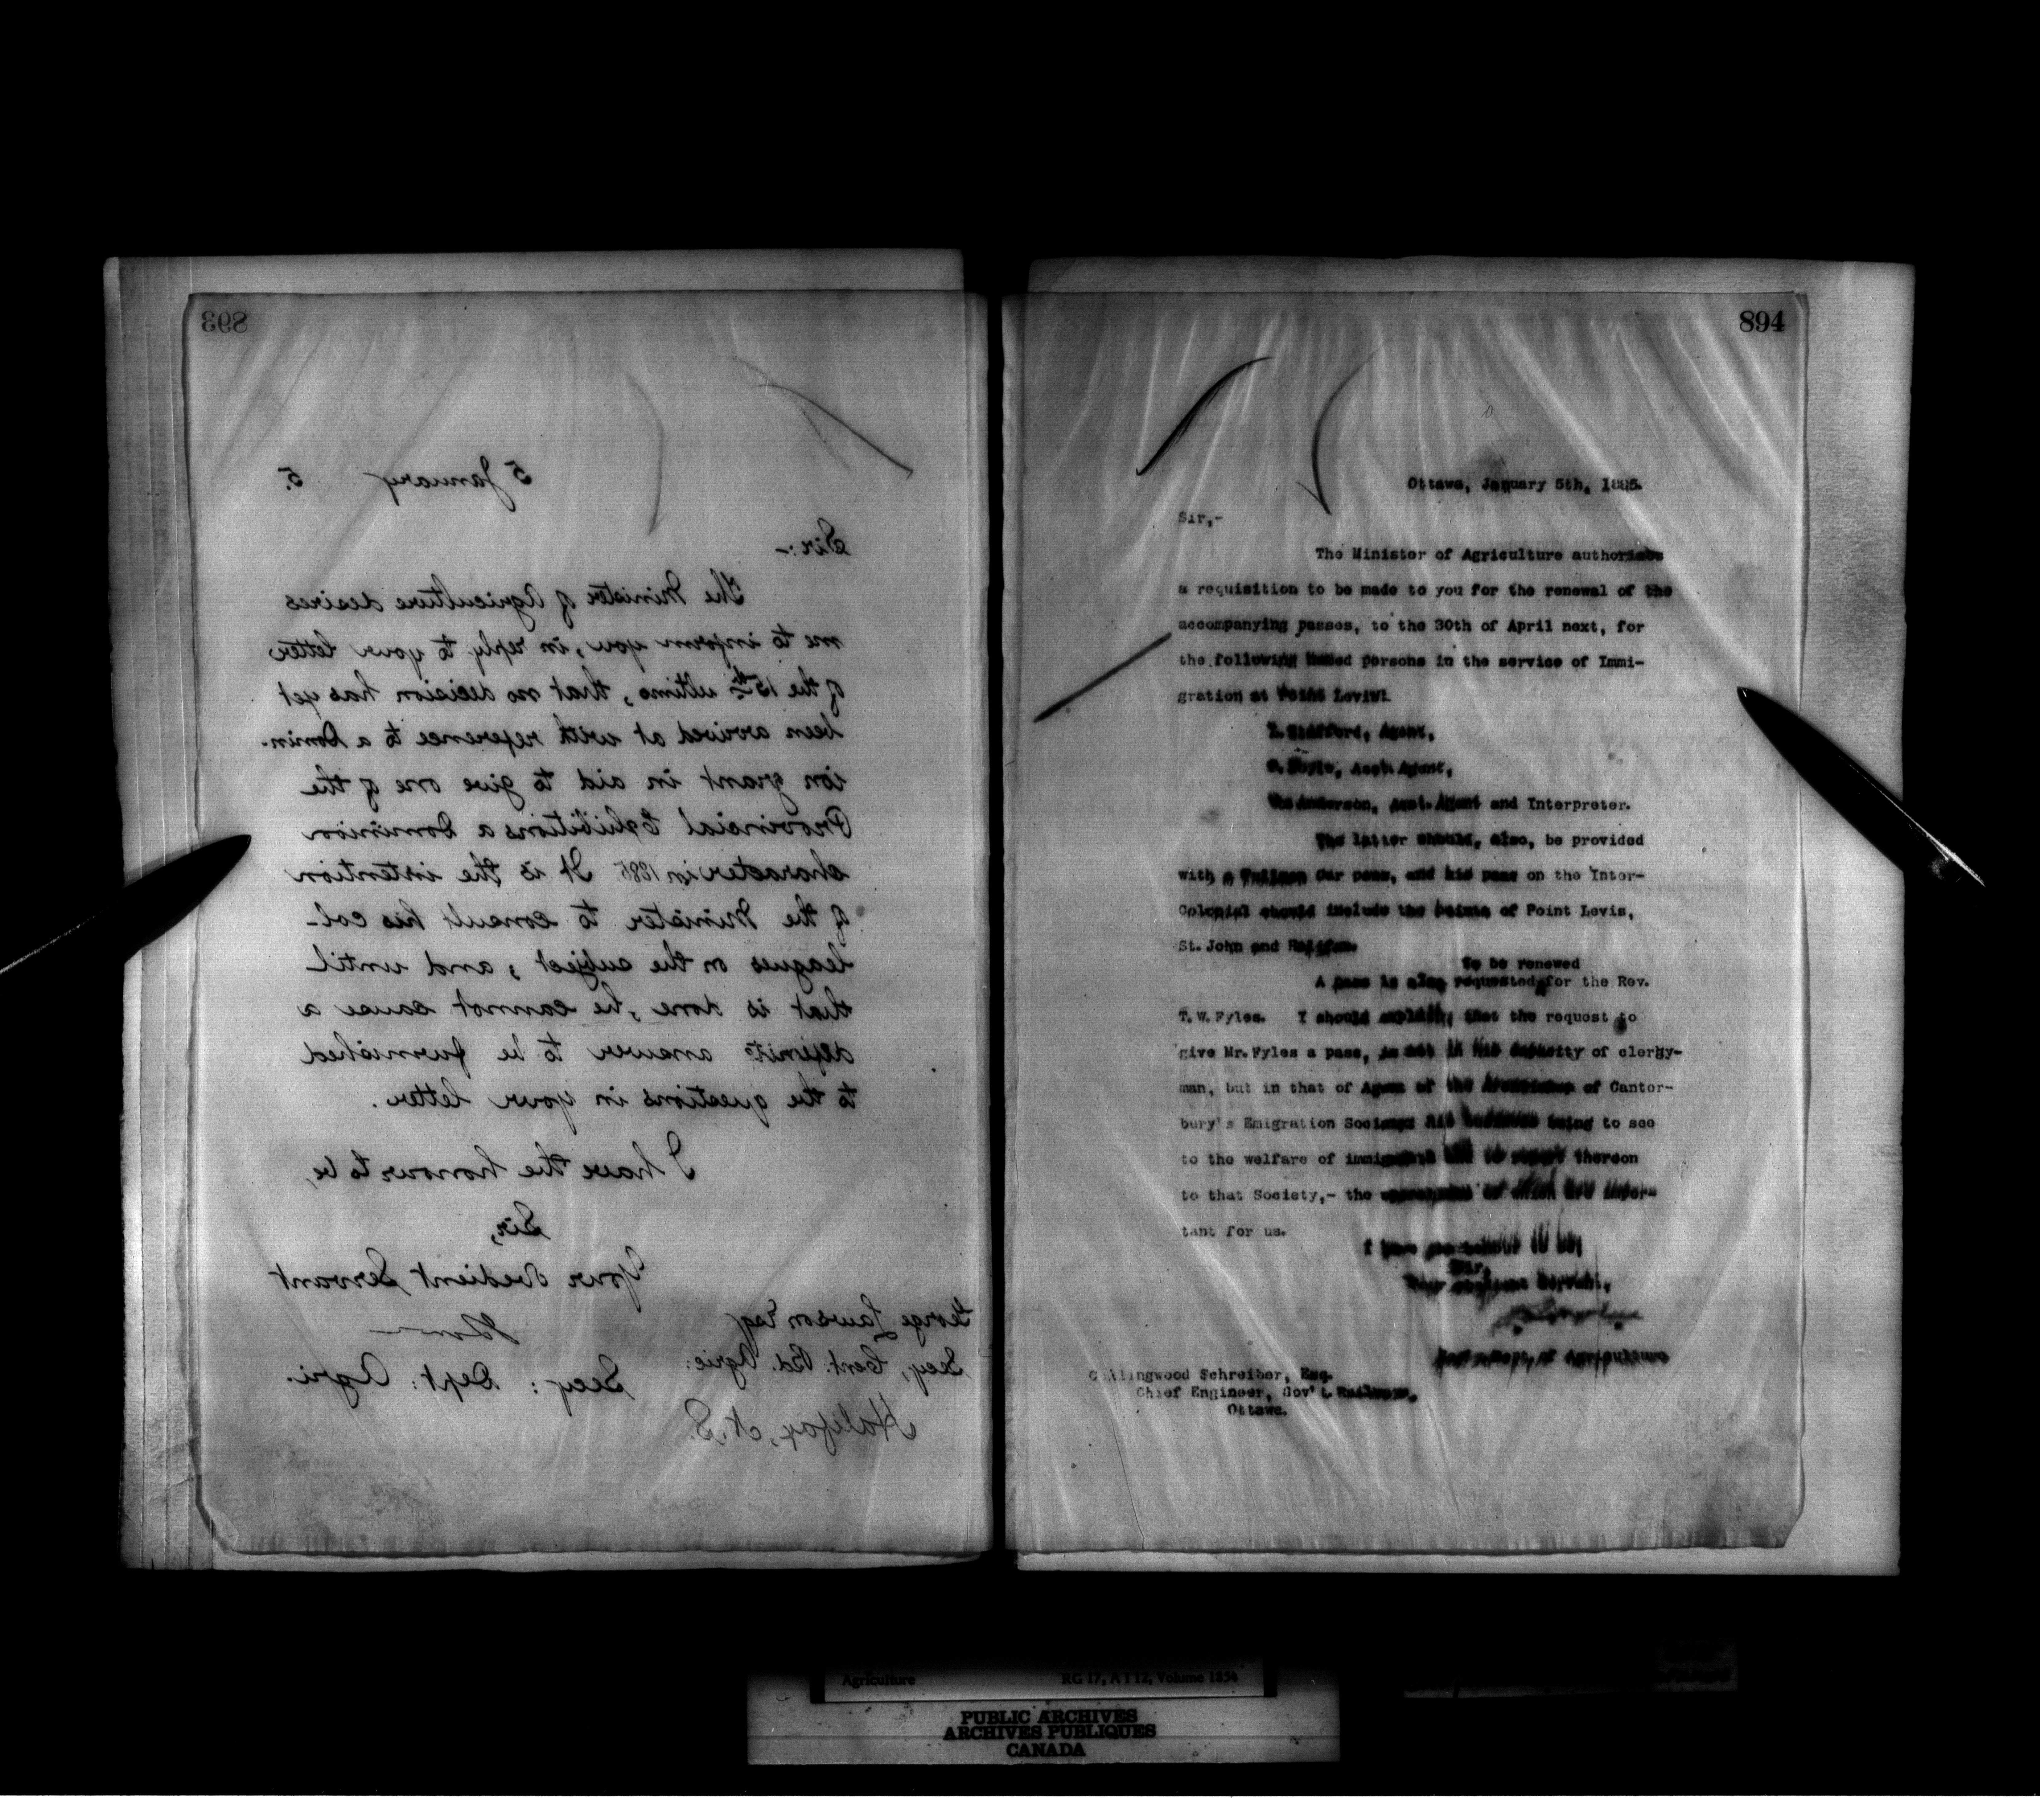 893
5 January 5.
Sir:-
The Minister of Agriculture desires
me to inform you, in reply to your letter
of the 15th ultimo, that no decision has yet
been arrived at with reference to a Domin-
ion grant in aid to give one of the
Provincial Exhibitions a Dominion
character in 1885 It is the intention
of the Minister to consult his col-
leagues on the subject, and until
that is done, he cannot cause a
definite answer to be furnished
to the questions in your letter.
I have the honour to be,
Sir,
Your Obedient Servant
Secy: Dept: Agri.
George Lawson Esq
Secy, Cent. Bd. Agric:
Halifax, N.S.
894
Ottawa, January 5th, 1885.
Sir,-
The Minister of Agriculture authorises
a requisition to be made to you for the renewal of the
accompanying passes, to the 30th of April next, for
the following named persons in the service of Immi-
gration at Point Levis:
Stafford, Agent,
Doyle, Asst. Agent,
Anderson, Asst. Agent and Interpreter.
The latter should, also, be provided
with a Pullman Car pass, and his pass on the Inter-
Colonial should include the points of Point Levis,
St. John and Halifax.
To be renewed
A pass is also requested for the Rev.
T. W. Fyles. I should explain, that the request to
give Mr. Fyles a pass, is not in his capacity of clergy-
man, but in that of Agent of the Archbishop of Canter-
bury's Emigration Society; his business being to see
to the welfare of immigrants and to report thereon
to that Society,- the of which are impor-
tant for us.
I have the honour to be,
Sir,
Your obedient Servant,
Dept. of Agriculture
Collingwood Schreiber, Esq.
Chief Engineer, Gov't. Railways,
Ottawa.
Agriculture RG 17, A I 12, Volume 1654
PUBLIC ARCHIVES
ARCHIVES PUBLIQUES
CANADA